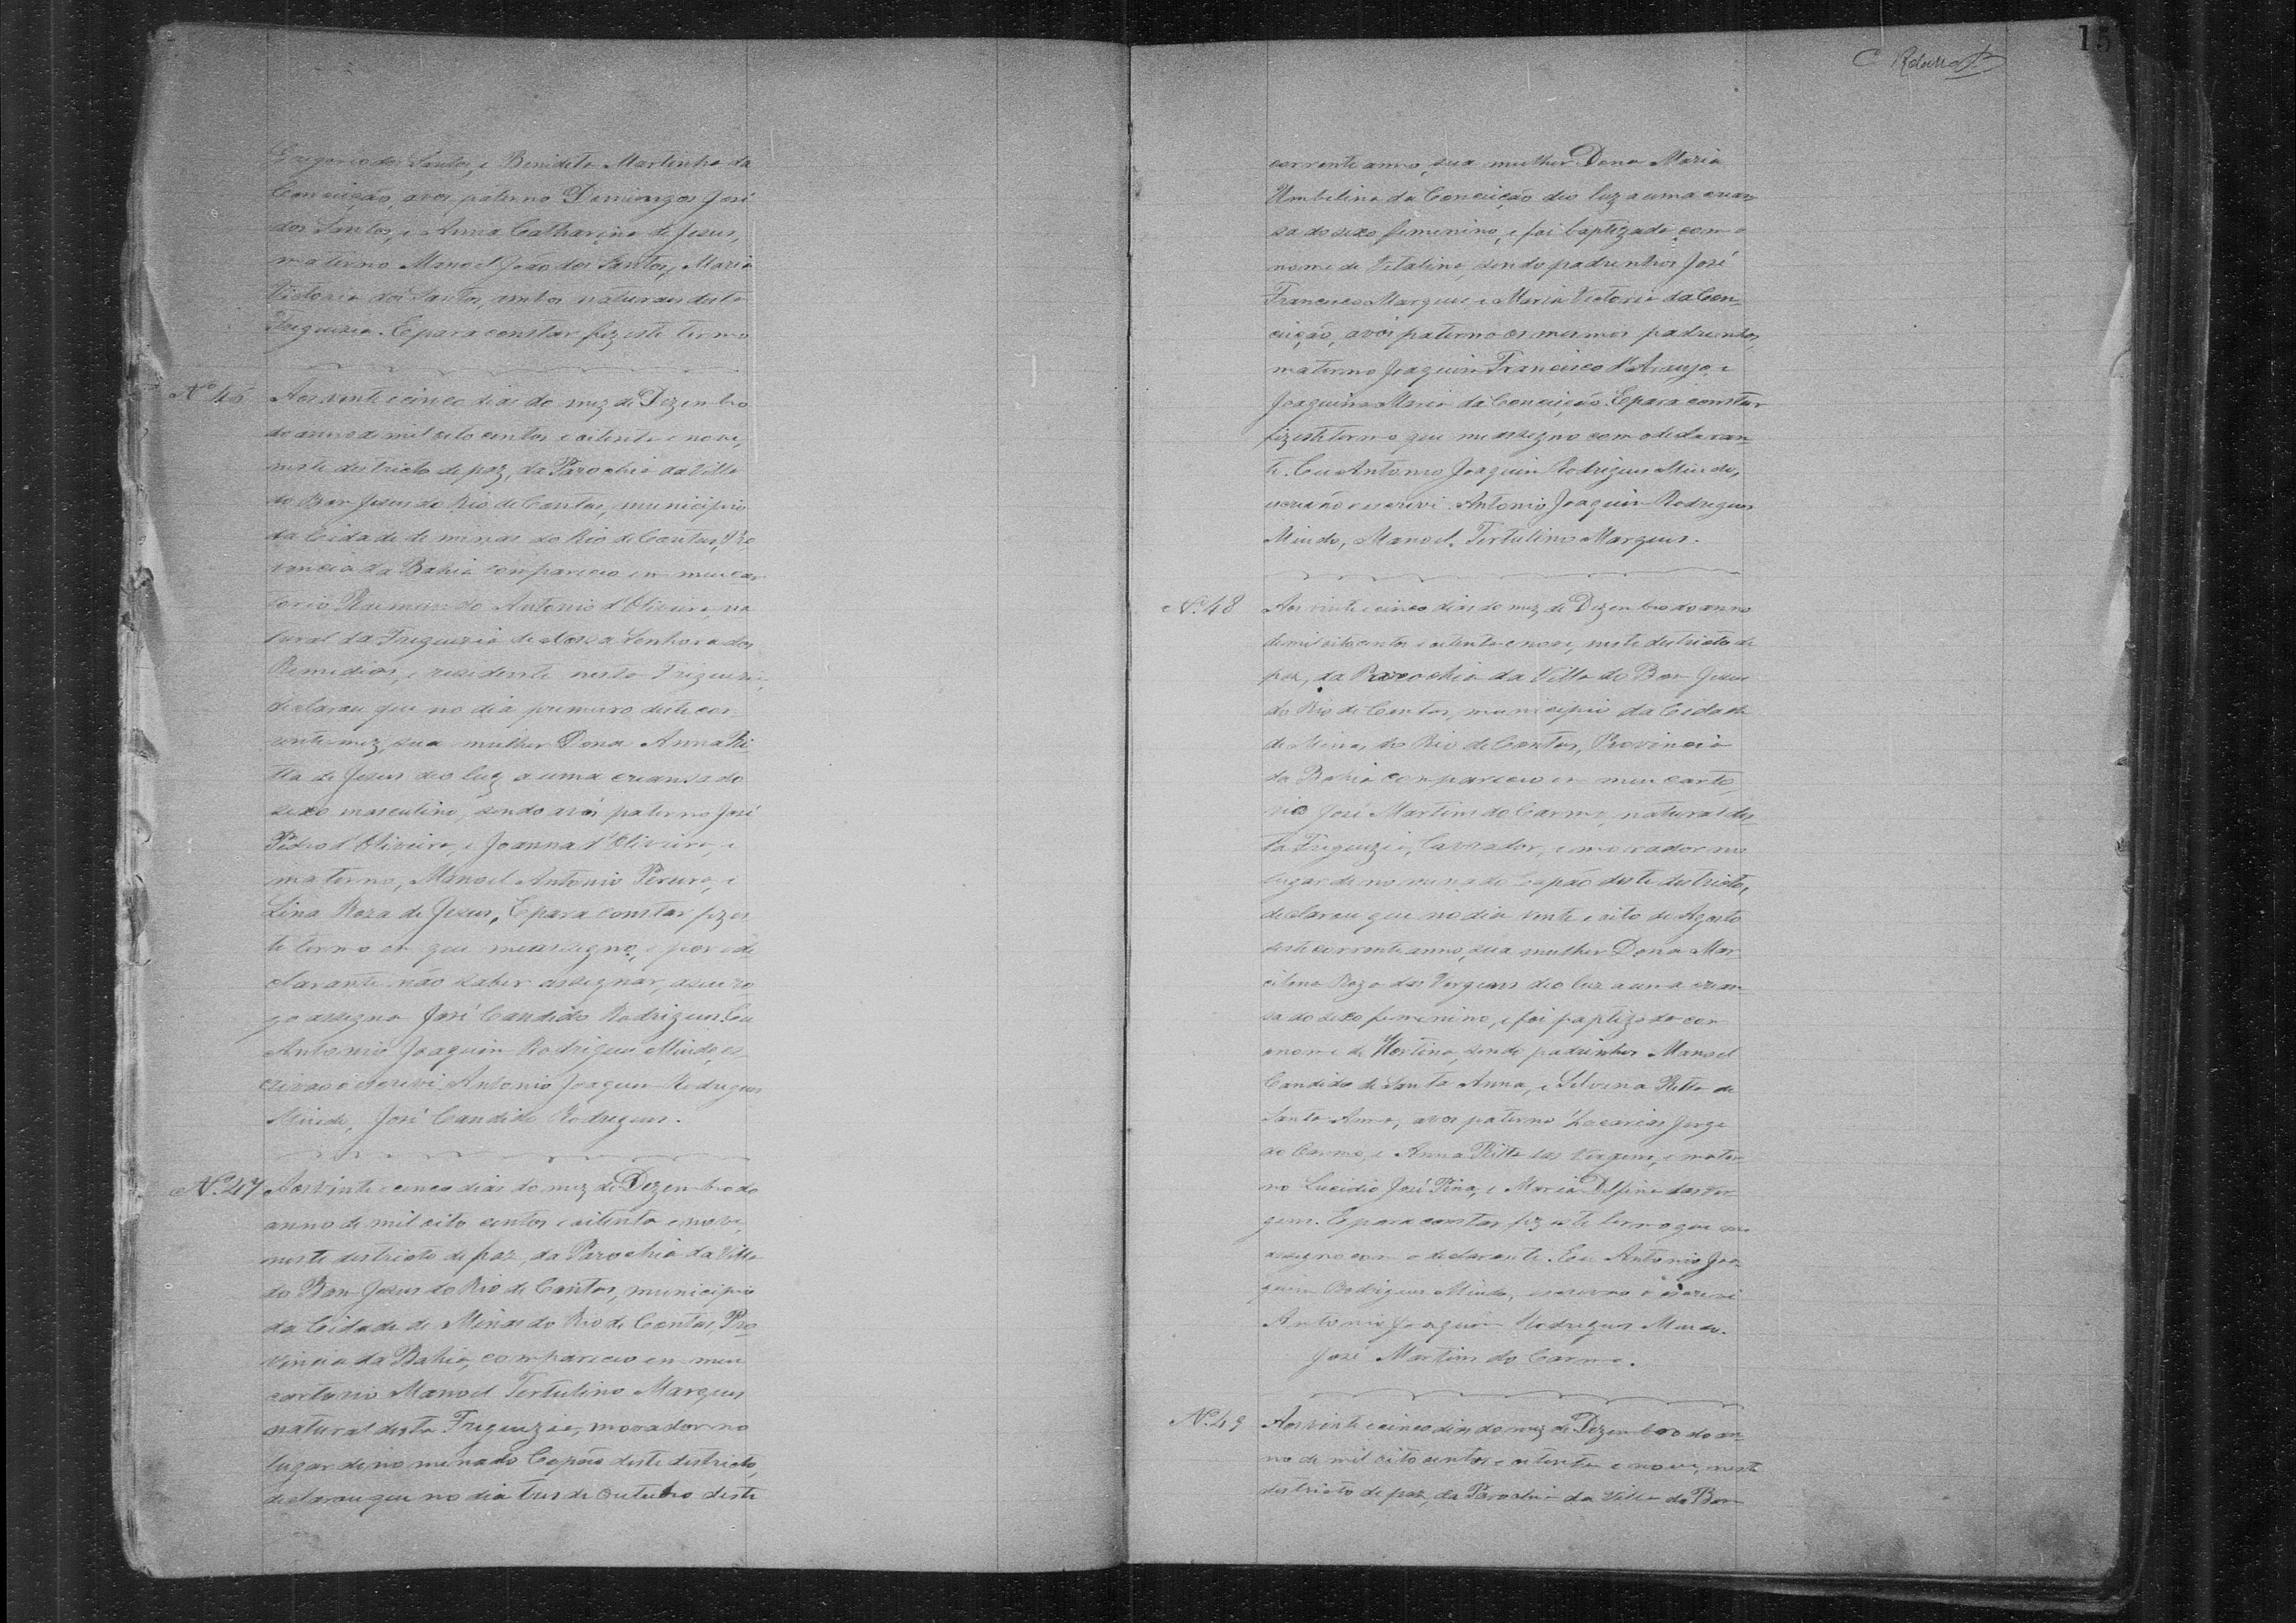 Gregorio dos Santos, e Benidita Martinha da
Conceição, avós paterno Domingos José
dos Santos, e Anna Catharina de Jesus,
materno Manoel João dos Santos, Maria
Victoria dos Santos, ambos naturaes desta
Freguezia. E para constar fiz este termo
Nº 46 Aos vinte e cinco dias do mez de Dezembro
do anno de mil oito centos e oitenta e nove,
neste destricto de paz, da Parochia da Villa
do Bom Jesus do Rio de Contas, municipio
da Cidade de minas do Rio de Contas, Pro
vincia da Bahia compareceo em meu car
torio Raimundo Antonio d'Oliveira, na
tural da Freguezia de Nossa Senhora dos
Remedios, e residente nesta Freguezia,
declarou que no dia primeiro deste cor
rente mez, sua mulher Dona Anna Ri
tta de Jesus deo luz a uma creansa do
sexo masculino, sendo avós paterno José
Pedro d'Oliveira, e Joanna d'Oliveira, e
materno, Manoel Antonio Pereira, e
Lina Roza de Jesus, E para constar fiz es
te termo em que me assegno, e por o de
clarante não saber assegnar, a seu ro
go assegna José Candido Rodrigues. Eu
Antonio Joaquim Rodrigues Mindo, es
crivão o escrevi. Antonio Joaquim Rodrigues
Mindo, José Candido Rodrigues.
Nº 47 Aos vinte e cinco dias do mez de Dezembro do
anno de mil oito centos e oitenta e nove
neste destricto de paz, da Parochia da Villa
do Bom Jesus do Rio de Contas, municipio
da Cidade de Minas do Rio de Contas, Pro
vincia da Bahia, compareceo em meu
cartorio Manoel Tertulino Marques
natural desta Freguezia, morador no
lugar denominado Capão deste destricto,
declarou que no dia tres de Outubro deste
15
corrente anno, sua mulher Dona Maria
Umbelina da Conceição deo luz a uma crean
sa do sexo femenino, e foi baptizada com o
nome de Vitalina, sendo padrinhos José
Francisco Marques e Maria Victoria da Con
ceição, avós paterno os mesmos padrinhos,
materno Joaquim Francisco d'Araujo e
Joaquina Maria da Conceição. E para constar
fiz este termo que me assegno com o declaran
te. Eu Antonio Joaquim Rodrigues Mindo,
escrivão o escrevi. Antonio Joaquim Rodrigues
Mindo, Manoel Tertulino Marques.
Nº 48 Aos vinte e cinco dias do mez de Dezembro do anno
de mil oito centos e oitenta e nove, neste destricto de
paz, da Parochia da Villa do Bom Jesus
do Rio de Contas, municipio da Cidade
de Minas do Rio de Contas, Provincia
da Bahia compareceo em meu carto
rio José Martins do Carmo, natural des
ta Freguezia, lavrador, e morador no
lugar denominado Capão deste destricto,
declarou que no dia vinte e oito de Agosto
deste corrente anno, sua mulher Dona Mar
cilina Roza das Vergens deo luz a uma crean
sa do sexo femenino, e foi paptizada com
o nome de Hortina, sendo padrinhos Manoel
Candido de Santa Anna, e Silvina Ritta de
Santa Anna, avós paterno Zacarias Jorge
do Carmo, e Anna Ritta das Vergens, e mater
no Lucidio José Pina, e Maria Delfina das Ver
gens. E para constar fiz este termo que me
assegno com o declarante. Eu Antonio Joa
quim Rodrigues Mindo, escrivão o escrevi
Antonio Joaquim Rodrigues Mindo.
José Martins do Carmo.
Nº 49 Aos vinte e cinco dias do mez de Dezembro do an
no de mil oito centos e oitenta e nove, neste
destricto de paz, da Parochia da Villa do Bom